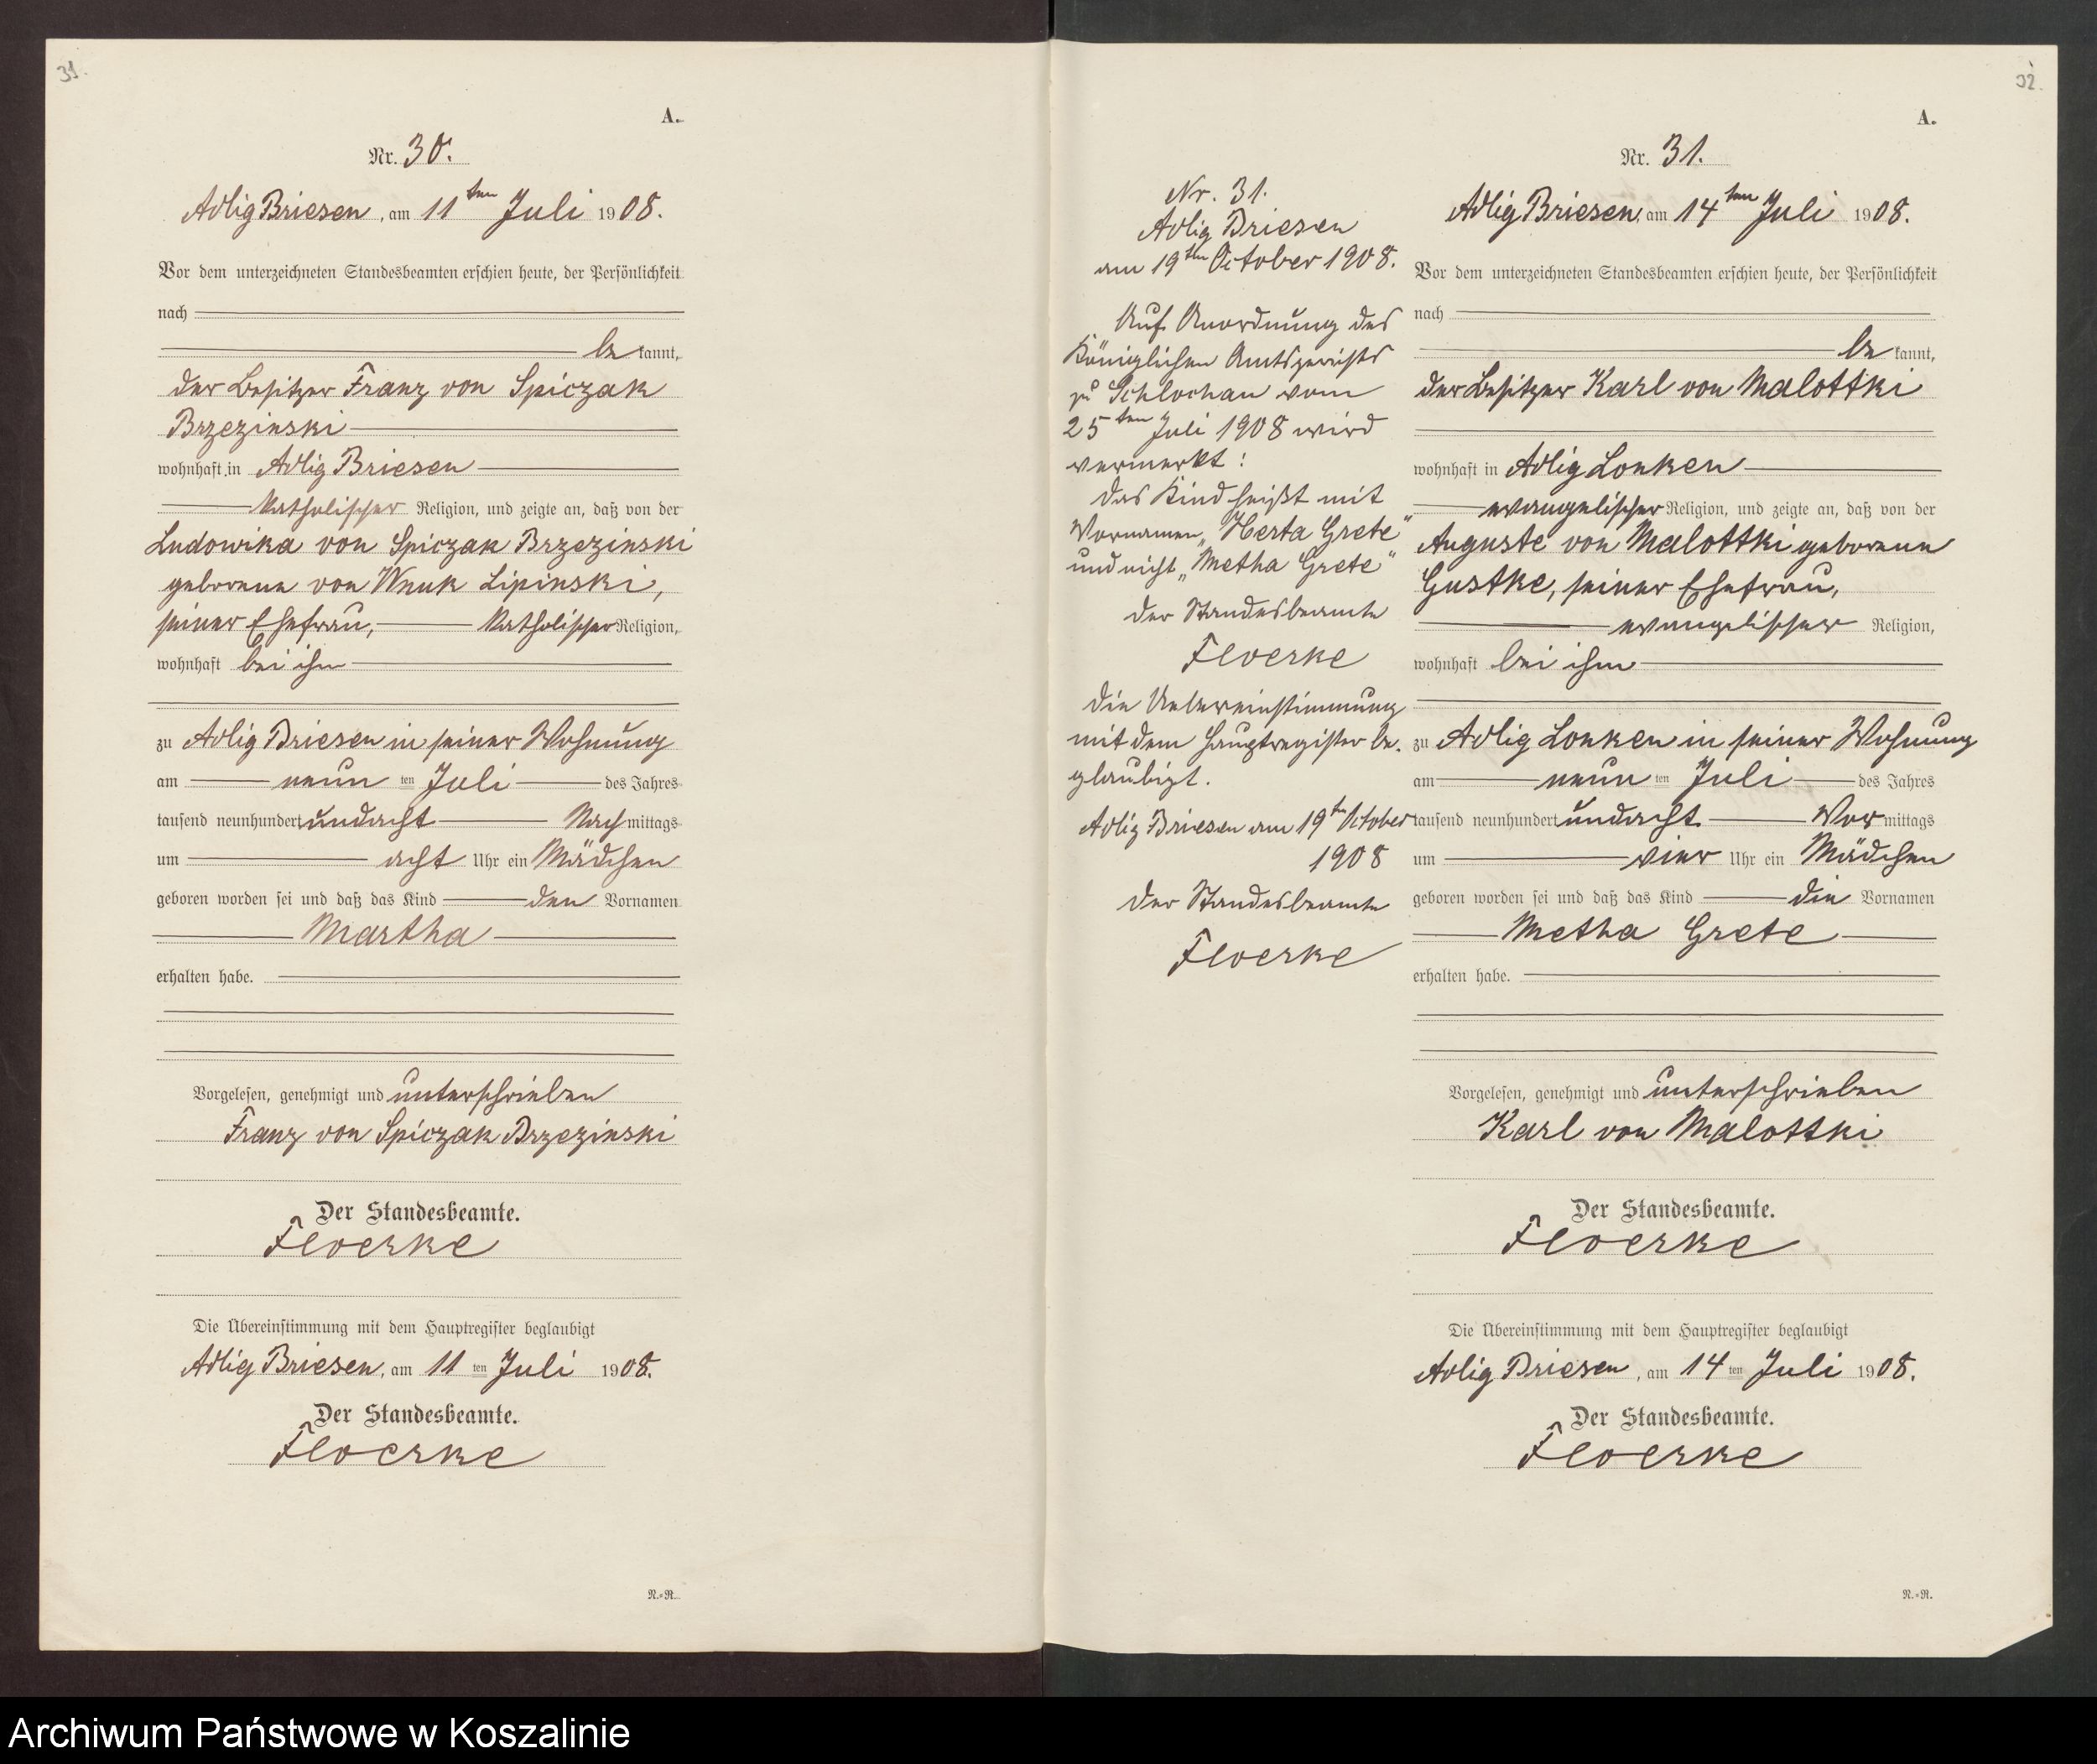 31.
A.
Nr. 30.
Adlig Briesen, am 11ten Juli 1908.
Vor dem unterzeichneten Standesbeamten erschien heute, der Persönlichkeit
nach
be kannt,
der Besitzer Franz von Spiczak
Brzezinski
wohnhaft in Adlig Briesen
katholischer Religion, und zeigte an, daß von der
Ludowika von Spiczak Brzezinski
geborene von Wnuk Lipinski,
seiner Ehefrau, katholischer Religion,
wohnhaft bei ihm
zu Adlig Briesen in seiner Wohnung
am neun ten Juli des Jahres
tausend neunhundert undacht Nach mittags
um acht Uhr ein Mädchen
geboren worden sei und daß das Kind den Vornamen
Martha
erhalten habe.
Vorgelesen, genehmigt und unterschrieben
Franz von Spiczak Brzezinski
Der Standesbeamte.
Floerke
Die Übereinstimmung mit dem Hauptregister beglaubigt
Adlig Briesen, am 11 ten Juli 1908.
Der Standesbeamte.
Floerke
N.=R.
Nr. 31.
Adlig Briesen
am 19ten October 1908.
Auf Anordnung des
Königlichen Amtsgerichts
zu Schlochau vom
25ten Juli 1908 wird
vermerkt:
Das Kind heißt mit
Vornamen „Herta Grete"
und nicht „Metha Grete"
Der Standesbeamte
Floerke
Die Uebereinstimmung
mit dem Hauptregister be-
glaubigt.
Adlig Briesen am 19ten October
1908
Der Standesbeamte
Floerke
32.
A.
Nr. 31.
Adlig Briesen, am 14ten Juli 1908.
Vor dem unterzeichneten Standesbeamten erschien heute, der Persönlichkeit
nach
be kannt,
der Besitzer Karl von Malottki
wohnhaft in Adlig Lonken
evangelischer Religion, und zeigte an, daß von der
Auguste von Malottki geborene
Gustke, seiner Ehefrau,
evangelischer Religion,
wohnhaft bei ihm
zu Adlig Lonken in seiner Wohnung
am neun ten Juli des Jahres
tausend neunhundert undacht Vor mittags
um vier Uhr ein Mädchen
geboren worden sei und daß das Kind die Vornamen
Metha Grete
erhalten habe.
Vorgelesen, genehmigt und unterschrieben
Karl von Malottki
Der Standesbeamte.
Floerke
Die Übereinstimmung mit dem Hauptregister beglaubigt
Adlig Briesen, am 14 ten Juli 1908.
Der Standesbeamte.
Floerke
N.=R.
Archiwum Państwowe w Koszalinie